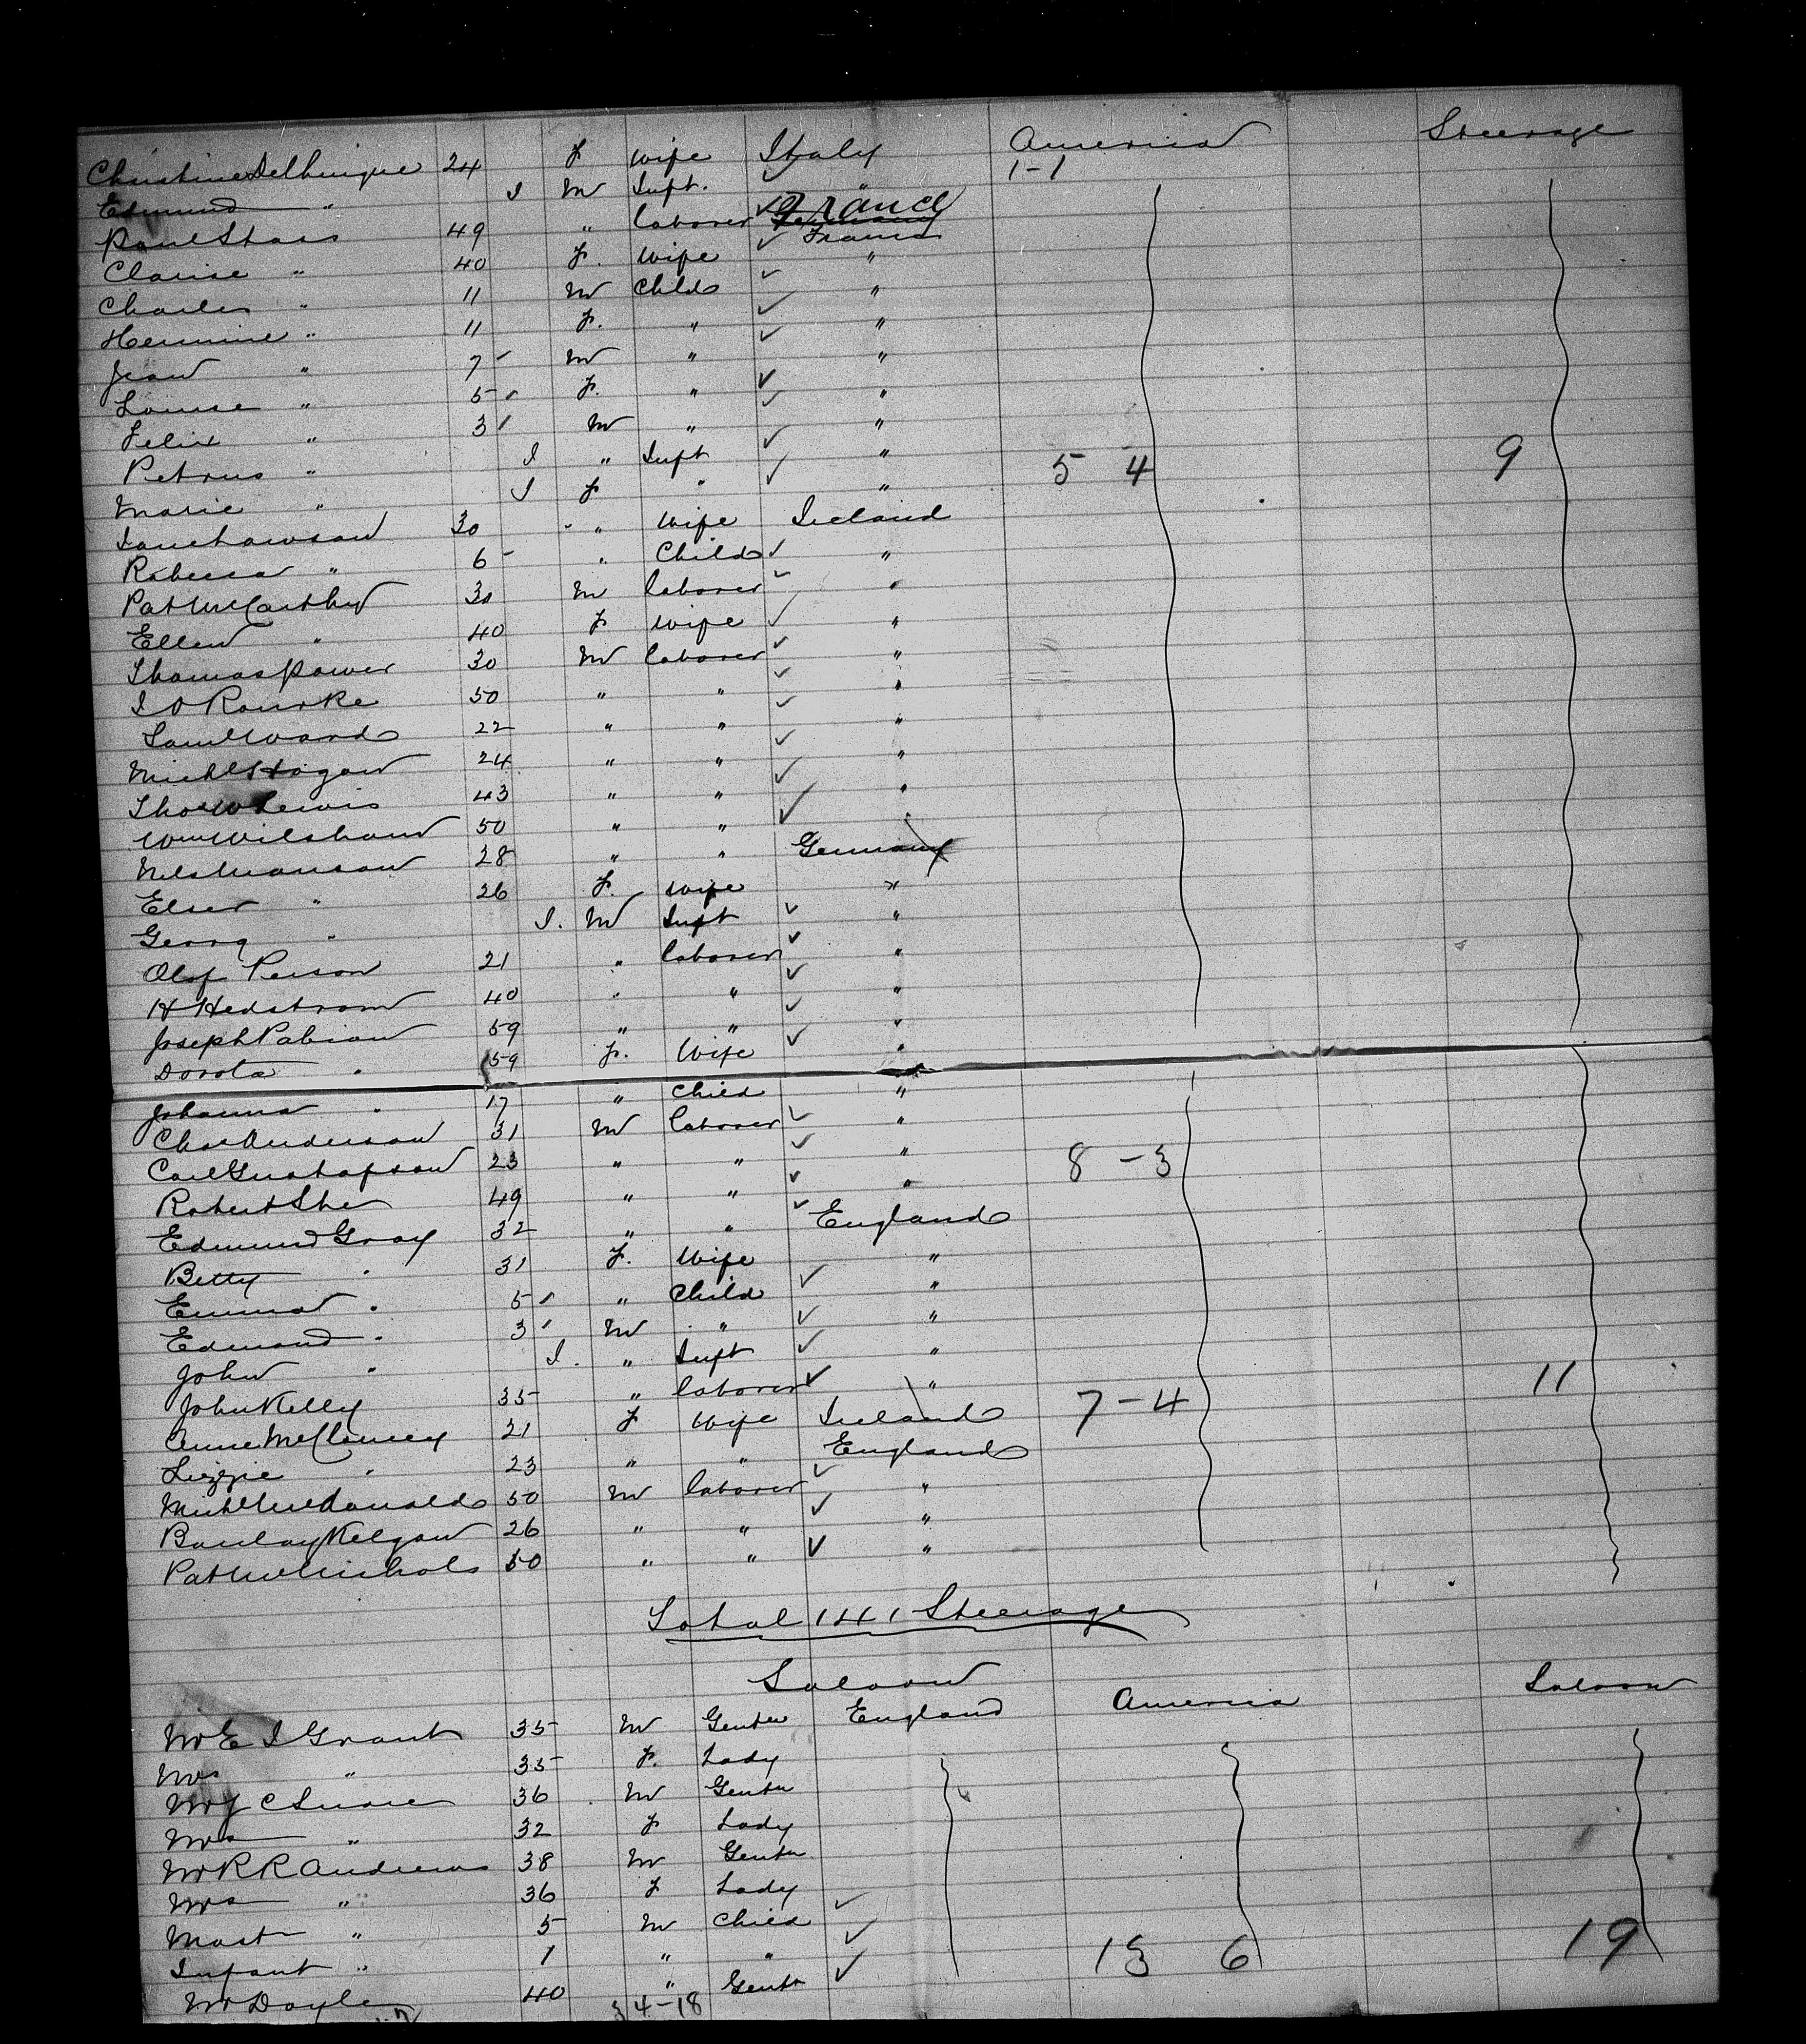 Christine Delhuique 24 F wife Italy America Steerage
Edmund " I M Inft. " 1-1
Paul Staes 49 " laborer Germany France
Clarise " 40 F. wife France "
Charles " 11 M Child "
Hermine " 11 F. " "
Jean " 7 M " "
Louise " 5 F. " "
Felix " 3 M " "
Petrus " I " Inft " 5 4 9
Marie " I F " "
Jane Lawson 30 " wife Ireland
Rebecca " 6 " Child "
Pat McCarthy 30 M laborer "
Ellen " 40 F wife "
Thomas Power 30 M laborer "
J O Rourke 50 " " "
Saml Ward 22 " " "
Michl Hogan 24 " " "
Thos W Lewis 43 " " "
Wm Wilshaw 50 " " "
Nels Manson 28 " " Germany
Elser " 26 F. wife "
Georg " I. M Inft "
Olof Person 21 " laborer "
H Hedstrom 40 " " "
Joseph Pabian 59 " " "
Dorota " 59 F. Wife "
Johanna " 17 " Child "
Chas Anderson 31 M laborer "
Carl Gustafson 23 " " " 8 - 3
Robert She 49 " " "
Edmund Gray 32 " " England
Betty " 31 F. Wife "
Emma " 5 " Child "
Edmond " 3 M " "
John " I. " Inft "
John Kelly 35 " laborer " 11
Anne McClancey 21 F Wife Ireland 7 - 4
Lizzie " 23 " " England
Michl McDonald 50 M laborer "
Barclay Kelgan 26 " " "
Pat McNichols 50 " " "
Total 141 Steerage
Saloon
Mr E I Grant 35 M Gentn England America Saloon
Mrs " 35 F. Lady
Mr J C 36 M Gentn
Mrs " 32 F Lady
Mr R R Andrews 38 M Gentn
Mrs " 36 F Lady
Mast " 5 M Child
Infant " 1 " " 13 6 19
Mr Doyle 40 " Gentn
4-18